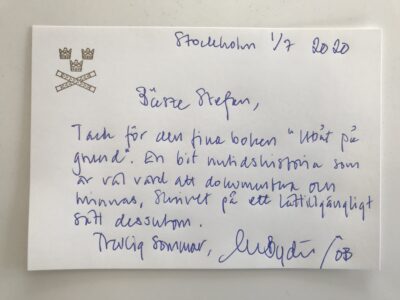 Stockholm 1/7 2020
Bäste Stefan,
Tack för den fina boken "Ubåt på
grund". En bit nutidshistoria som
är väl värd att dokumentera och
minnas, skrivet på ett lättillgängligt
sätt dessutom.
Trevlig sommar, /ÖB